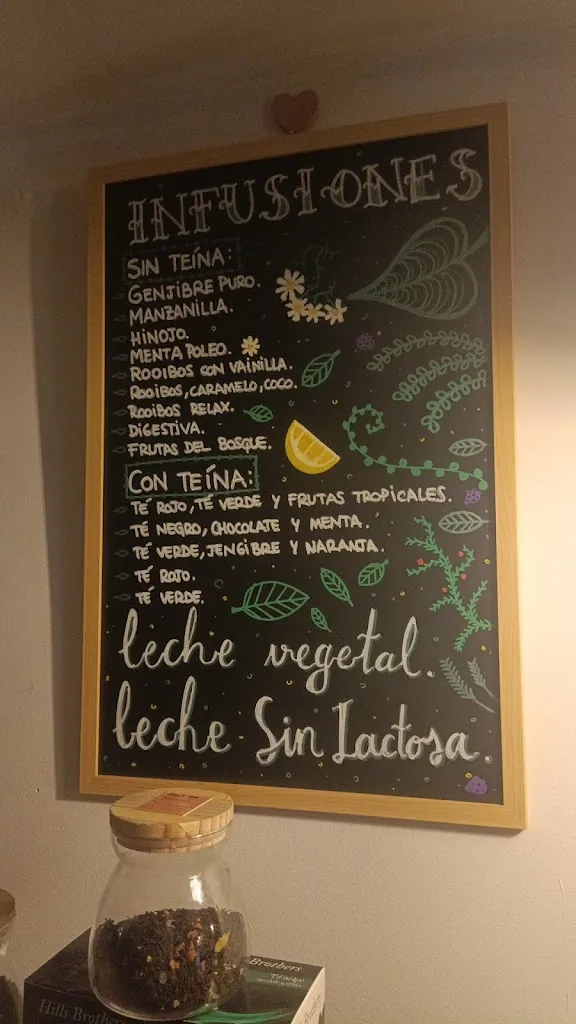 INFUSIONES
SIN TEÍNA:
GENJIBRE PURO.
MANZANILLA.
HINOJO.
MENTA POLEO.
ROOIBOS CON VAINILLA.
ROOIBOS, CARAMELO, COCO.
ROOIBOS RELAX.
DIGESTIVA.
FRUTAS DEL BOSQUE.
CON TEÍNA:
TÉ ROJO, TÉ VERDE Y FRUTAS TROPICALES.
TÉ NEGRO, CHOCOLATE Y MENTA.
TÉ VERDE, JENGIBRE Y NARANJA.
TÉ ROJO.
TÉ VERDE.
leche vegetal.
leche Sin Lactosa.
Brothers
Hills Brothers